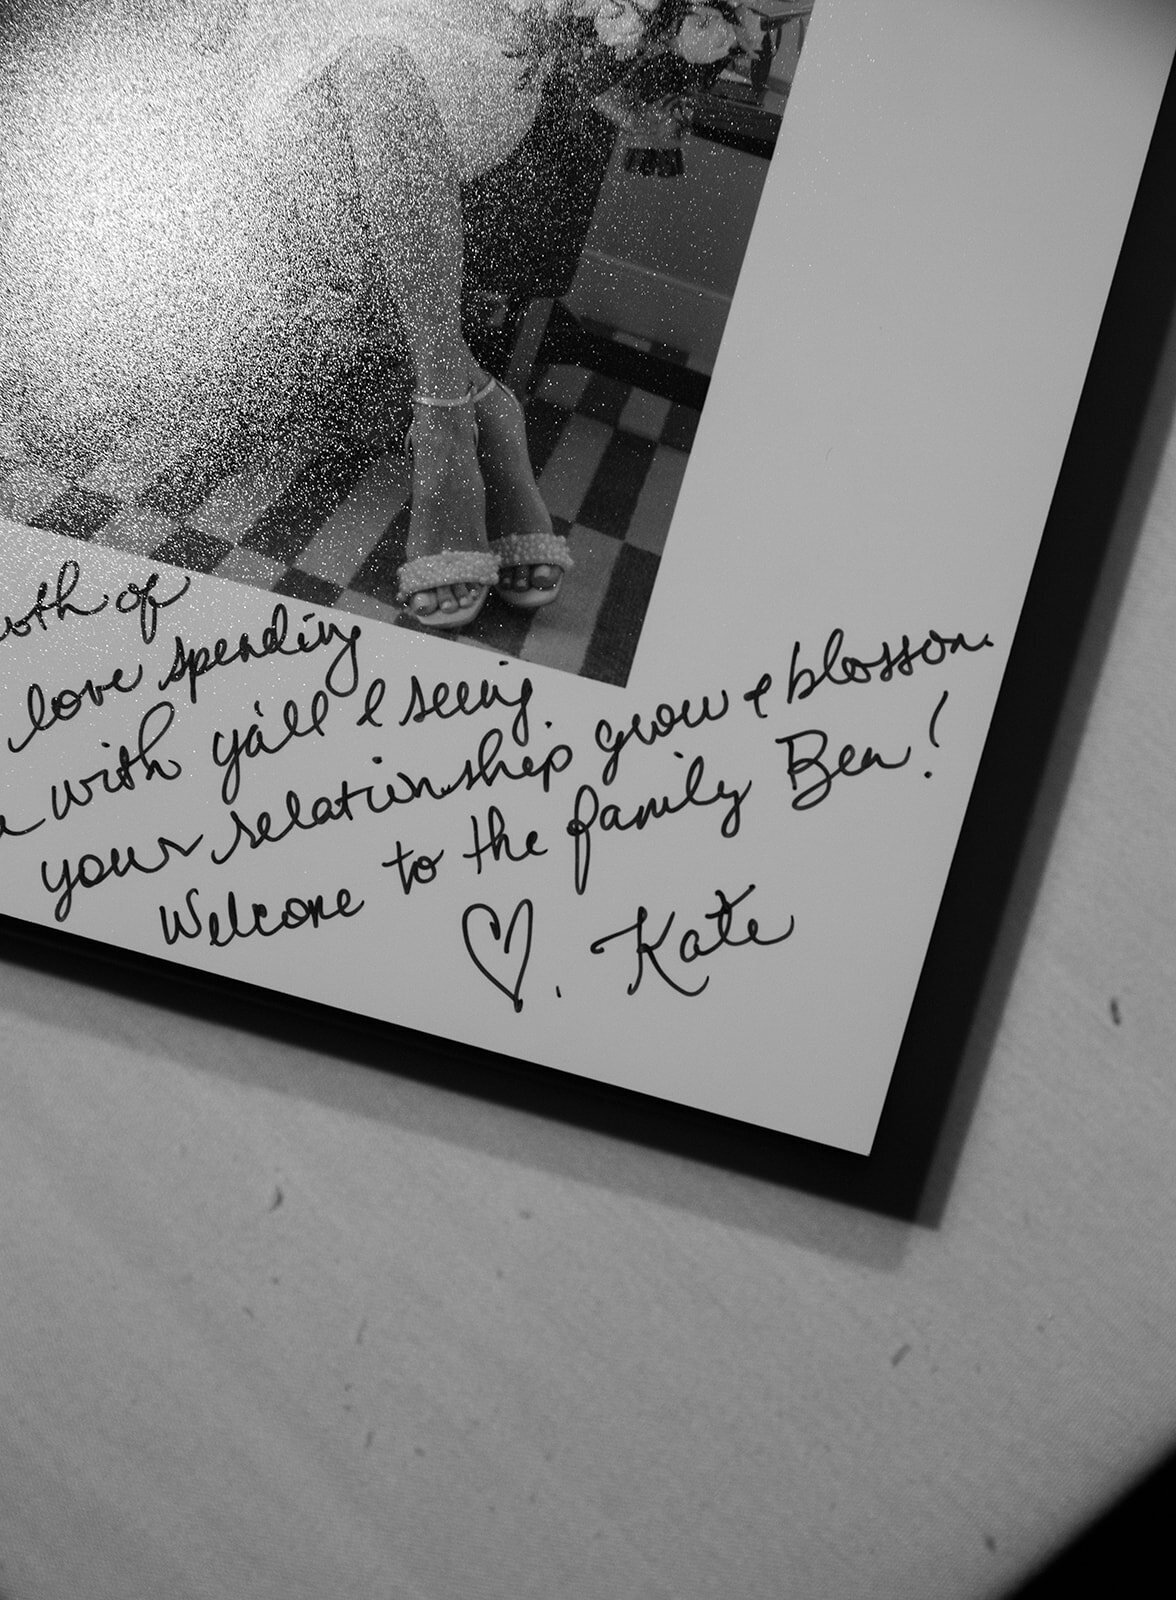 of
love spending
with y'all & seeing
your relationship grow & blossom.
Welcome to the family Ben!
♡. Kate